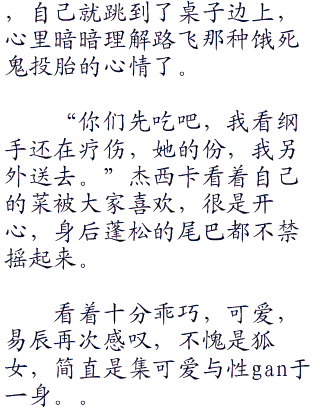 ，自己就跳到了桌子边上，
心里暗暗理解路飞那种饿死
鬼投胎的心情了。
“你们先吃吧，我看纲
手还在疗伤，她的份，我另
外送去。”杰西卡看着自己
的菜被大家喜欢，很是开
心，身后蓬松的尾巴都不禁
摇起来。
看着十分乖巧，可爱，
易辰再次感叹，不愧是狐
女，简直是集可爱与性gan于
一身。。